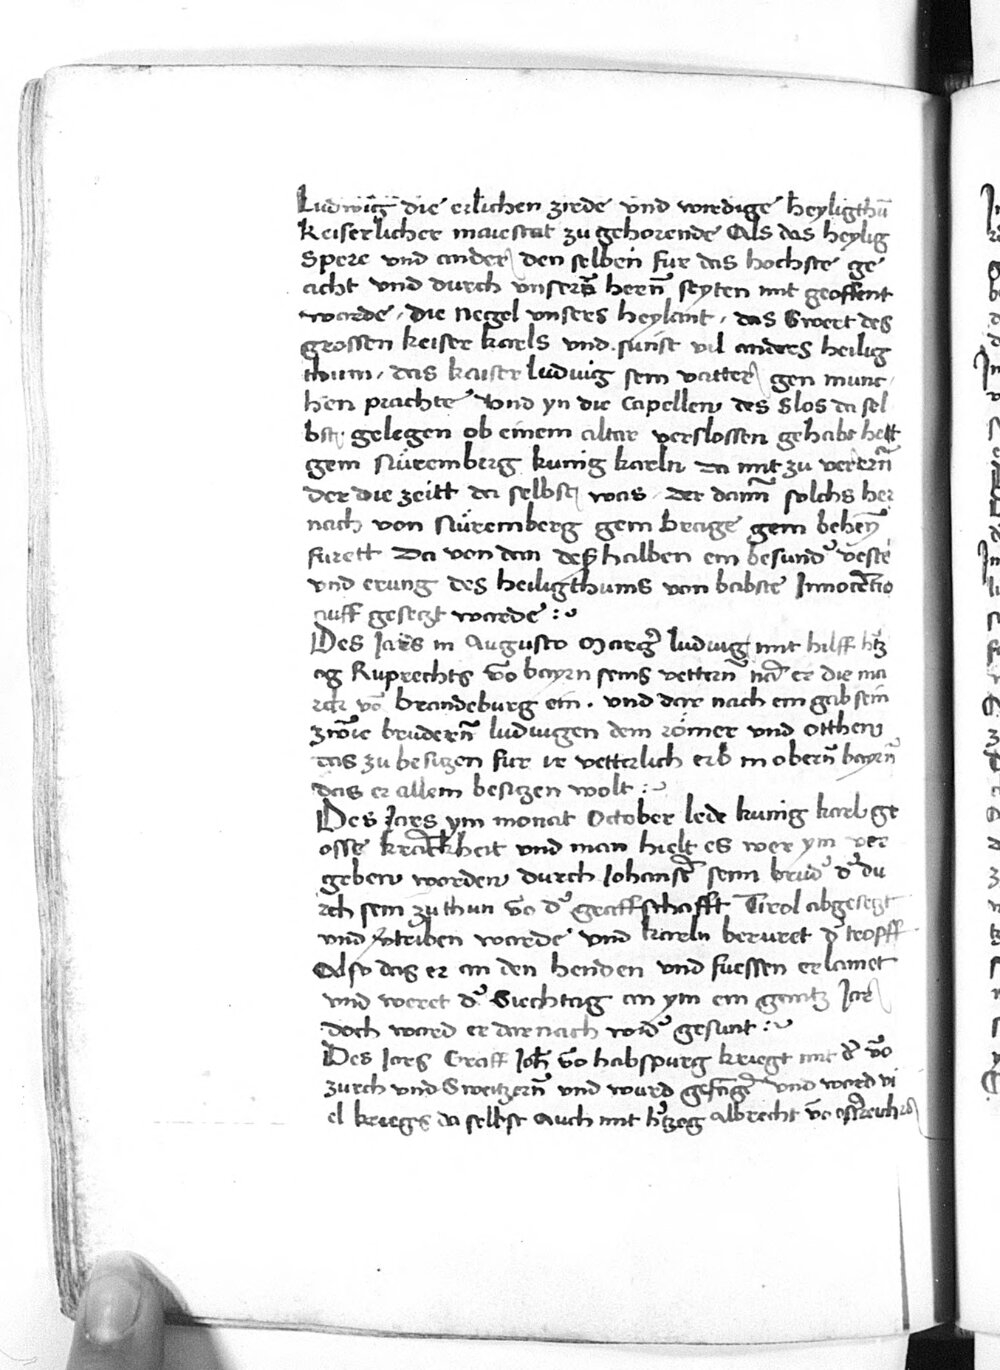 Ludwig̃ die erlichen zirde vnd wirdige heyligthũ
Keiserlicher maiestat zu gehorende Als das heylig
Spere vnd ander den selben fur das hochste ge
acht vnd durch vnsers̃ herñ seyten mit geoffent
warde, die Negel vnsers heylant, das Swert des
grossen keiser karls vnd sunst vil anders heilig
thum, das kaiser ludwig sein vatter gen munc
hen prachte Vnd yn die Capellen des Slos da sel
bst gelegen ob einem altar verslossen gehabt hett
gem Nüremberg kunig karln da mit zu verer̃n
der die zeitt da selbst was, der dam̃ solchs her
nach von Nüremberg gem brage gem behem̃
furett Da von dan deshalben ein besund᷑ veste
vnd erung des heiligthums von babste Innocẽtio
auff gesetzt warde :~
Des Jars in Augusto Margᷓ ludwig mit hilff h᷑tz
og Ruprechts võ bayrn seins vetterñ nã er die ma
rck võ brandeburg ein . vnd dar nach ein gab sein
zwõe bruderñ ludwigen dem römer vnd otthen
das zu besitzen fur ir vetterlich erb in oberñ bayrñ
das er allein besitzen wolt :~
Des Jars ym monat October lede kunig karl ge
osse krãckheit vnd man hielt es wer ym ver
geben worden durch Johansẽ seim brud᷑ d᷑ du
rch sein zu thun võ d᷑ graffschafft Tirol abgesetzt
vnd v᷑triben warde vnd karln beruret d᷑ tropff
Also das er an den henden vnd fuessen erlamet
vnd weret d᷑ Siechtag an ym ein gantz Jar
doch ward er dar nach wid᷑ gesunt :~
Des Jars Graff Joh̃ võ habspurg kriegt mit d᷑ võ
zurch vnd Sweitzerñ vnd wurd gefãgẽ vnd ward vi
el kriegs da selbst Auch mit h᷑tzog albrecht võ ost᷑reich